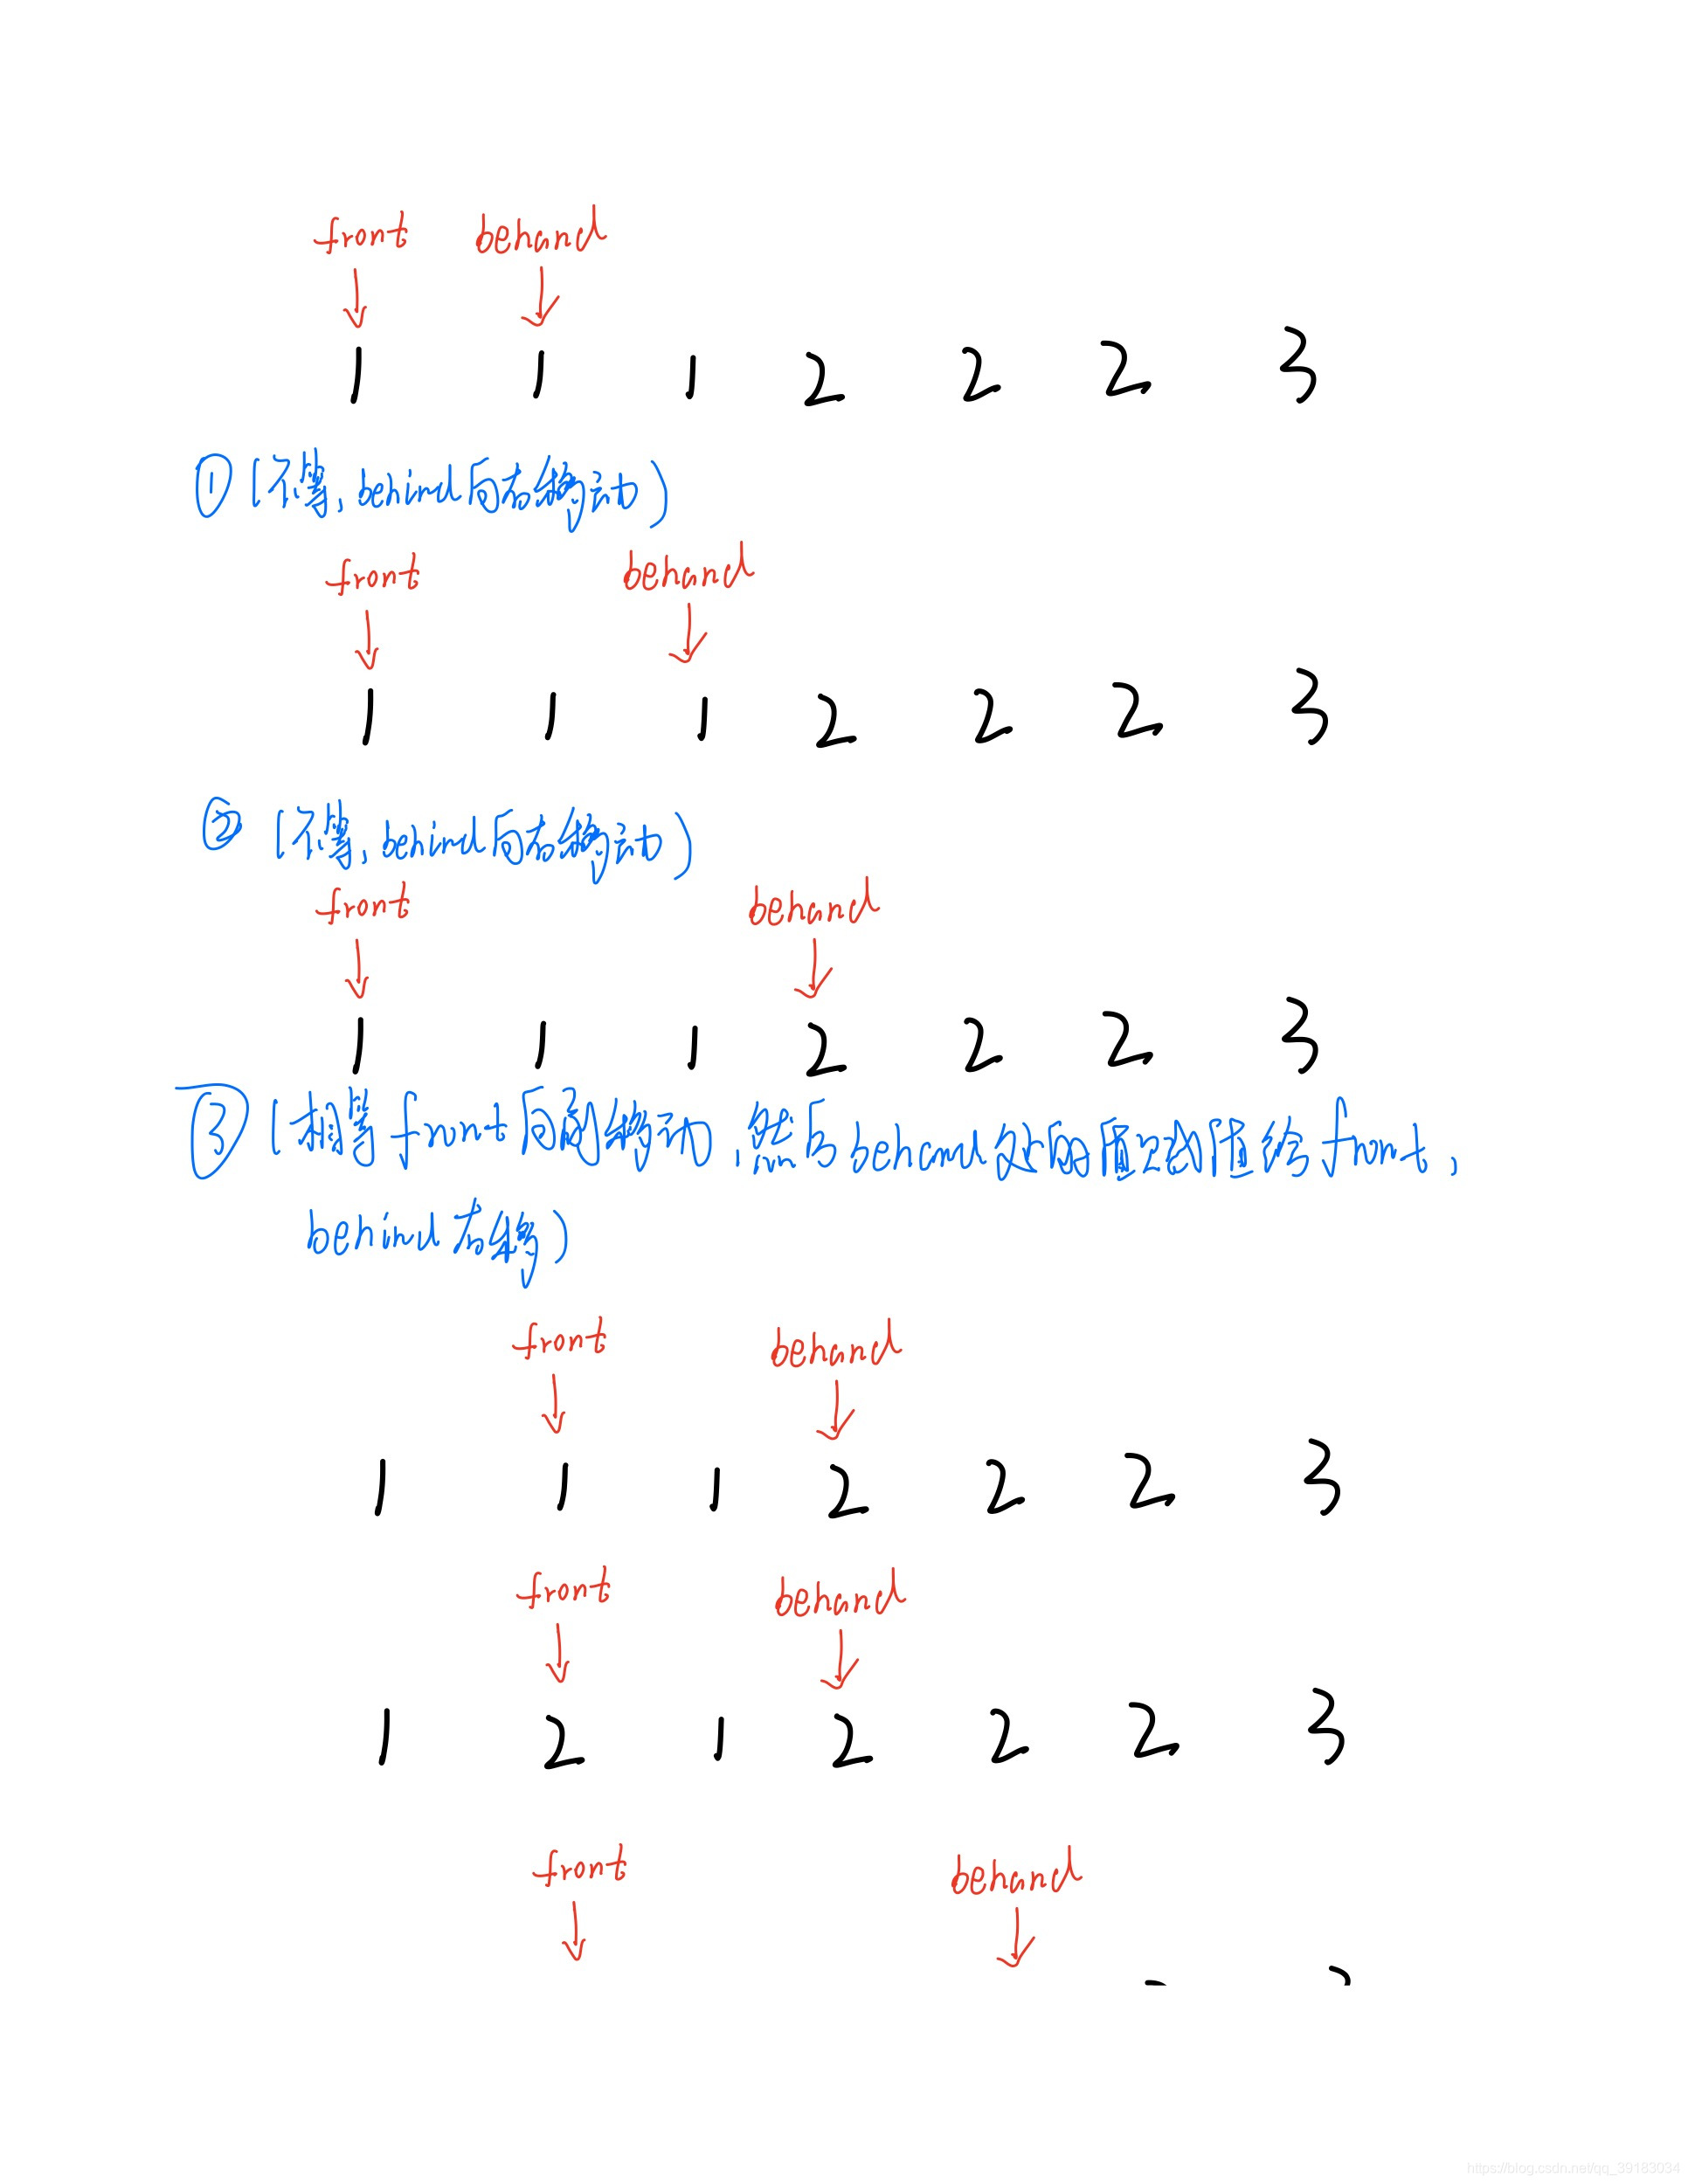 front behand
1 1 1 2 2 2 3
① (不等, behind向右移动)
front behand
1 1 1 2 2 2 3
② (不等, behind向右移动)
front behand
1 1 1 2 2 2 3
③ (相等front向 移动, 然后behand 值给front,
behind右移)
front behand
1 1 1 2 2 2 3
front behand
1 2 1 2 2 2 3
front behand
https://blog.csdn.net/qq_39183034